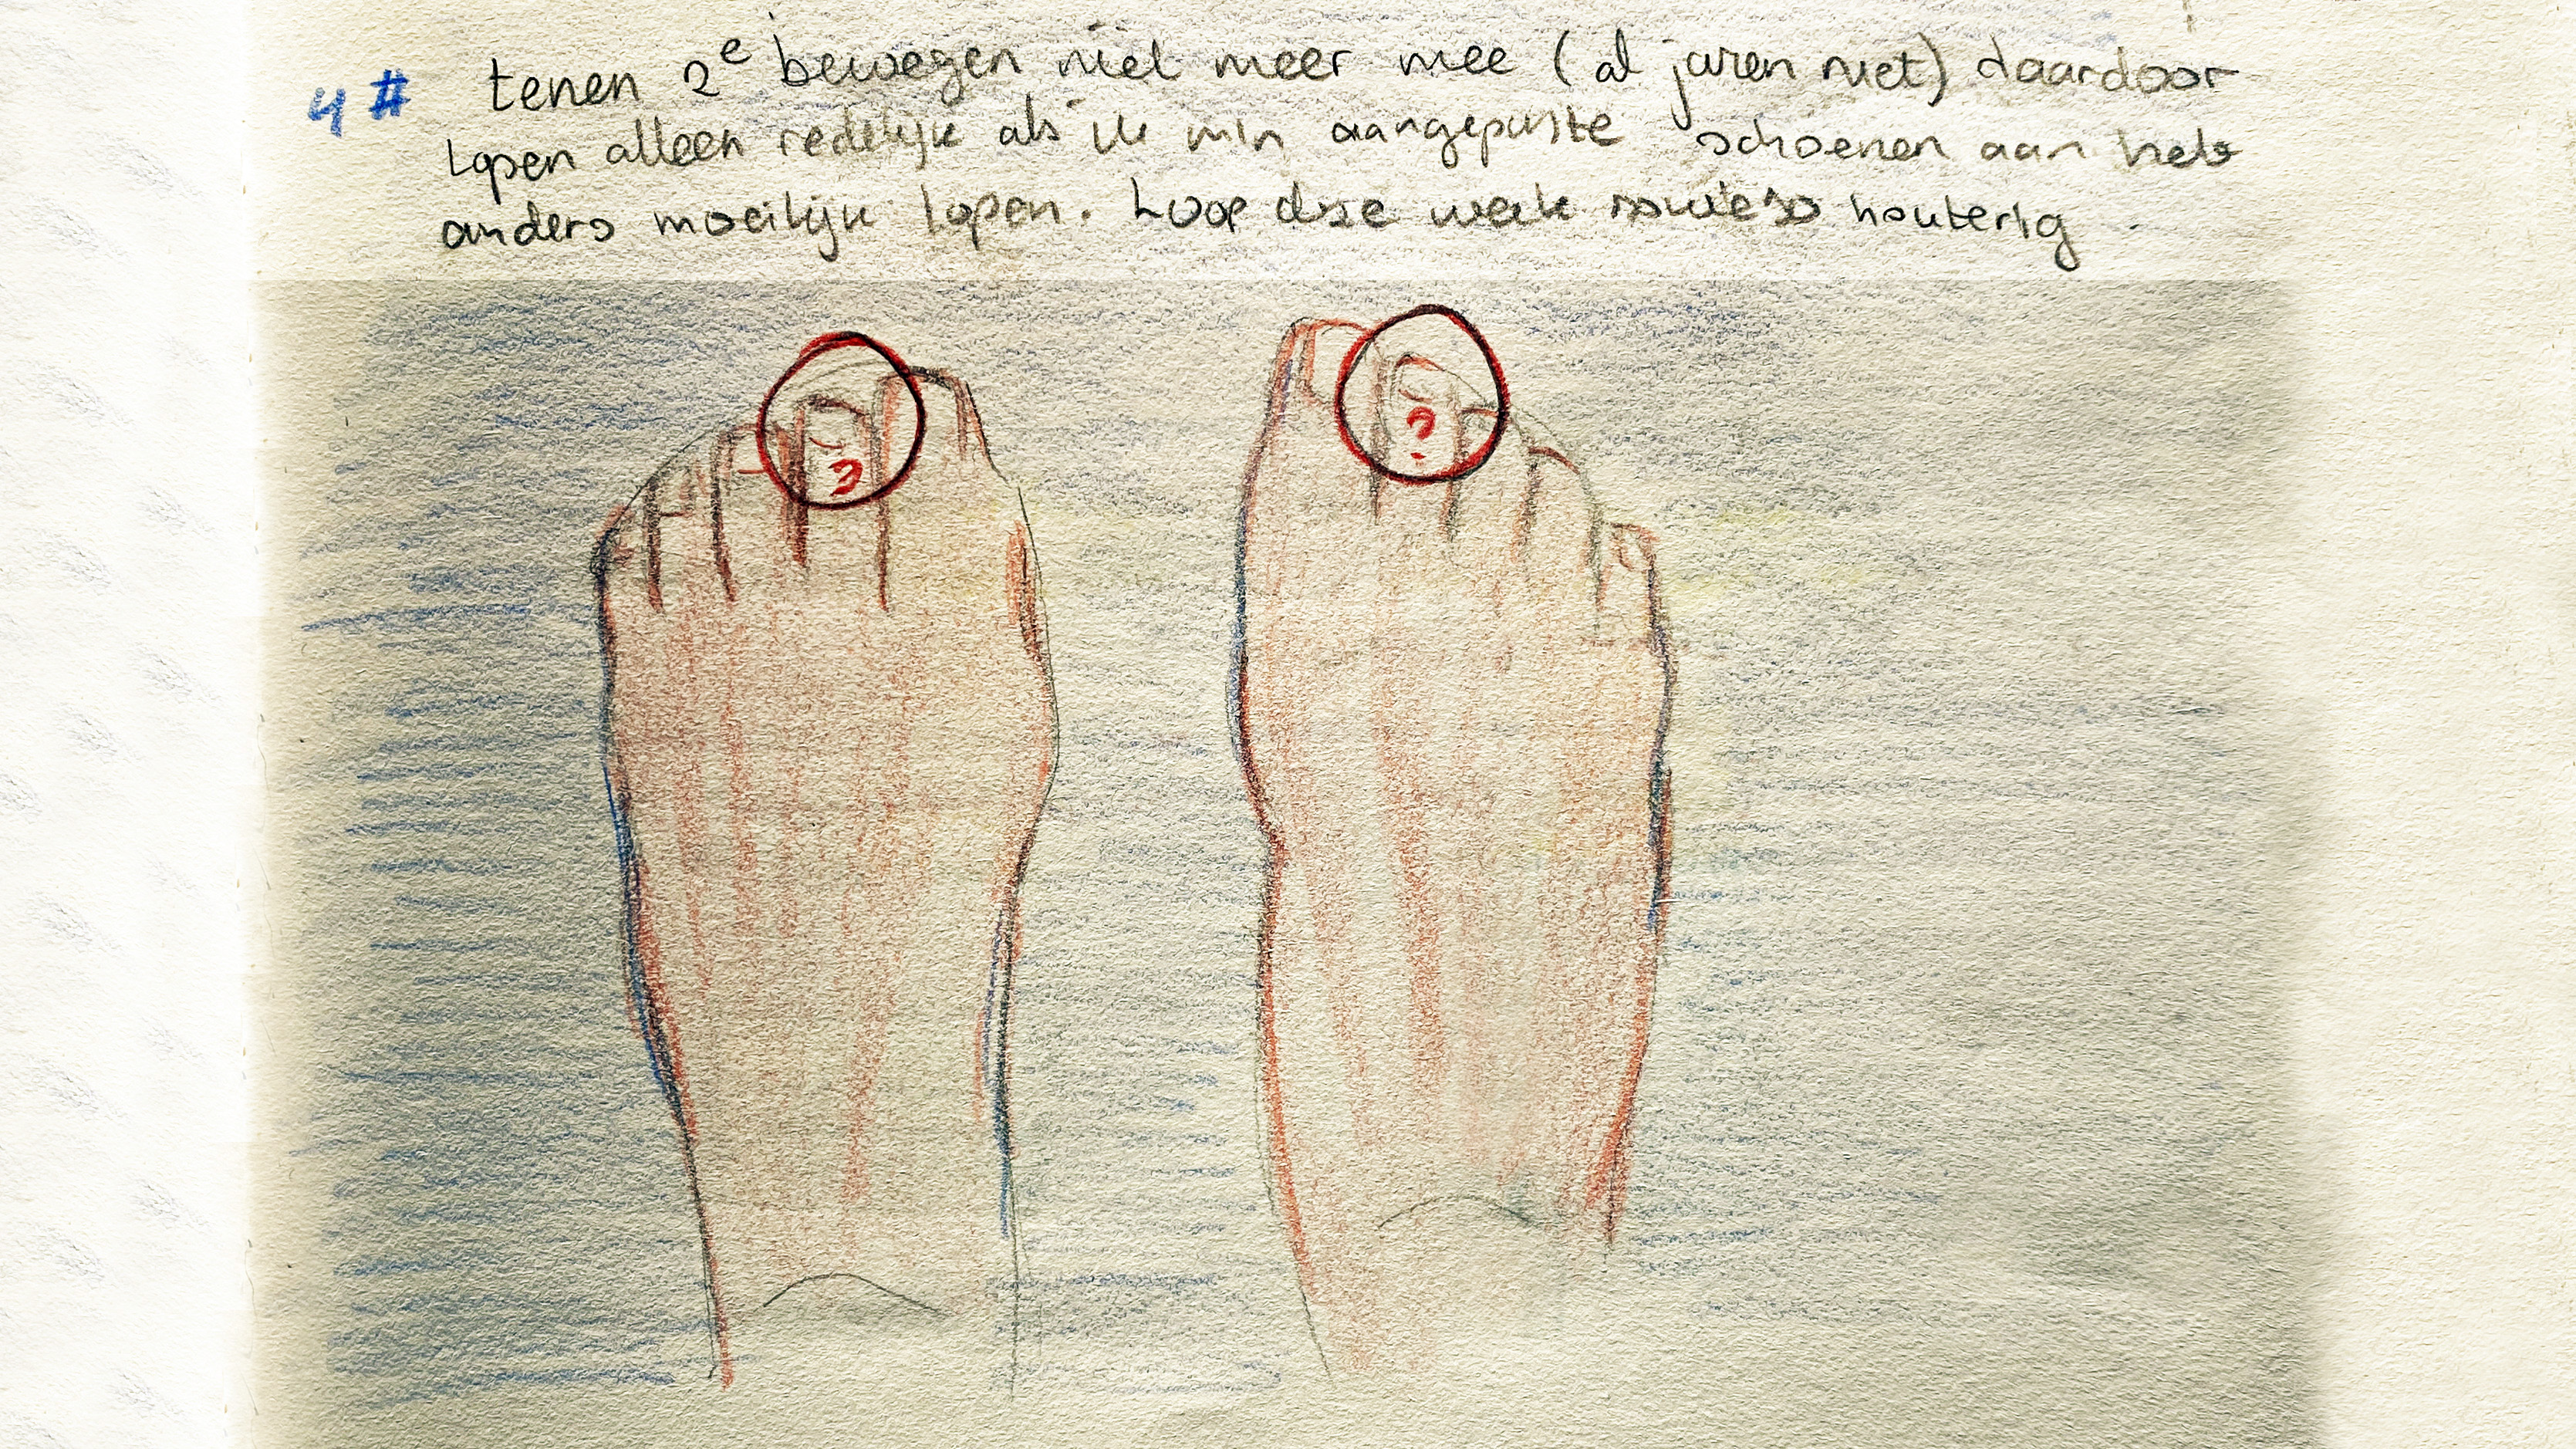 4# tenen 2e bewegen niet meer mee (al jaren niet) daardoor
lopen alleen redelijk als ik mijn aangepaste schoenen aan heb
anders moeilijk lopen. Loop deze week sowieso houterig.
?
?